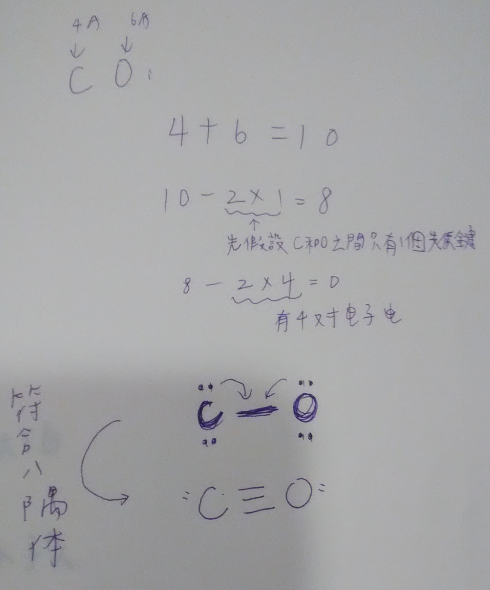 4A 6A
C O
4 + 6 = 10
10 - 2 × 1 = 8
先假設C和O之間只有1個先鍵
8 - 2 × 4 = 0
有4对电子
C — O
符合八隅体
:C≡O: